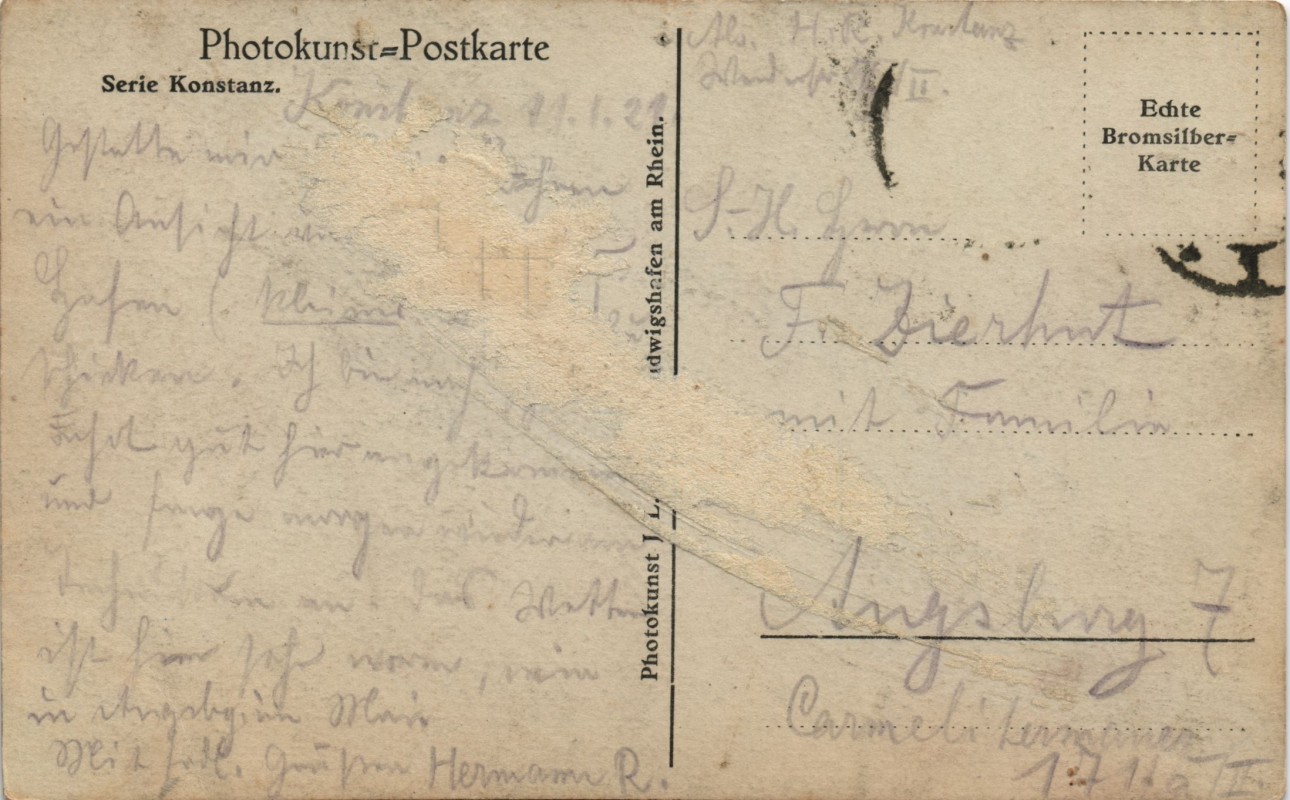 Photokunst=Postkarte
Serie Konstanz.
Konstanz 11.1.21
Gestatte mir Ihnen
ein Ansicht vom
Hafen
schicken. Ich bin nach
Fahrt gut hier angekommen
und fange morgen wieder im
an. Das Wetter
ist hier sehr warm, wie
in Augsbg. im Mai
Mit frdl. Grüßen Hermann R.
Photokunst J. L. udwigshafen am Rhein.
Abs. H. R. Konstanz
II.
Echte
Bromsilber=
Karte
S-H. Herrn
F. Dierhut
mit Familie
Augsburg 7
Carmelitermauer